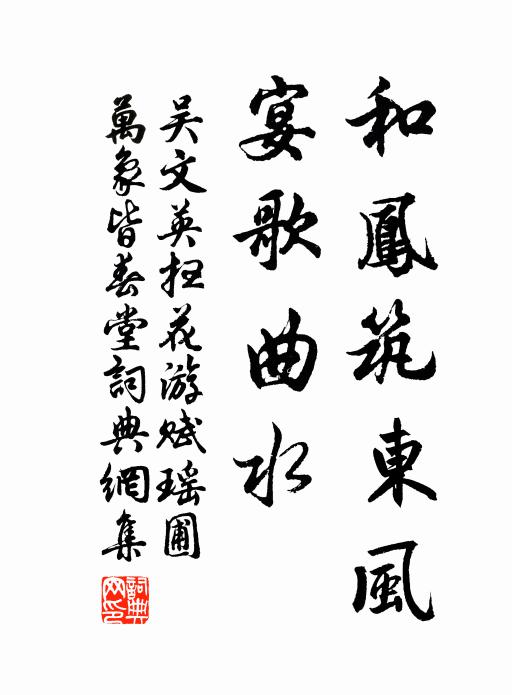 和鳳筑東風
宴歌曲水
吴文英扫花游赋瑶圃
萬象皆春堂詞典網集
詞典網印